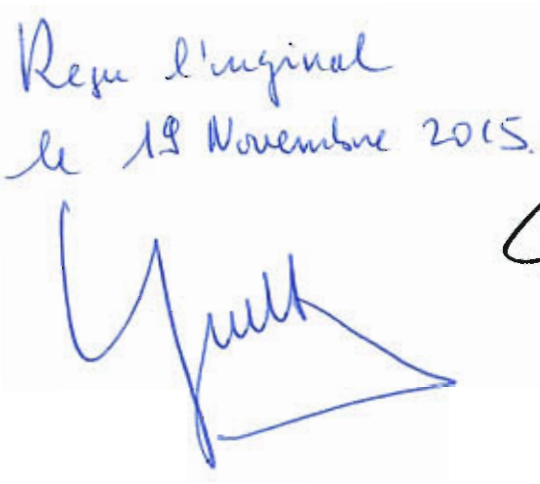 Reçu l'original
le 19 Novembre 2015.